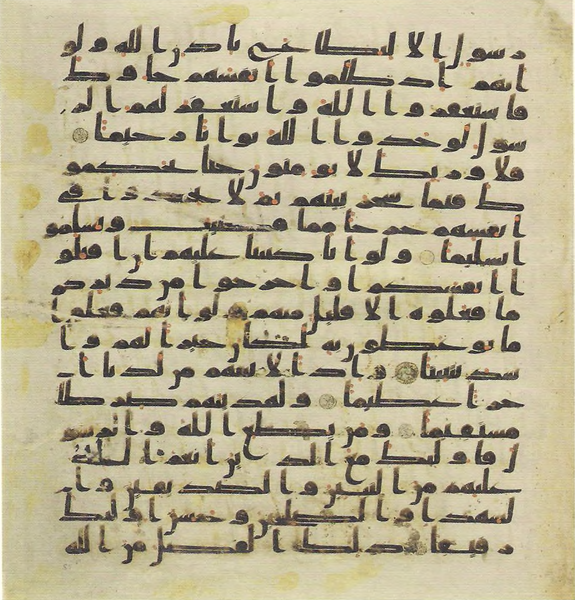 رسول الا ليطاع باذن الله ولو
انهم اذ ظلموا انفسهم جاوك
فاستغفروا الله واستغفر لهم الر
سول لوجدوا الله توابا رحيما
فلا وربك لا يومنون حتى يحكمو
ك فيما شجر بينهم ثم لا يجدوا في
انفسهم حرجا مما قضيت ويسلمو
ا تسليما ولو انا كتبنا عليهم ان اقتلو
ا انفسكم او اخرجوا من ديركم
ما فعلوه الا قليل منهم ولو انهم فعلوا
ما يوعظون به لكان خيرا لهم وا
شد تثبيتا واذا لاتينهم من لدنا ا
جرا عظيما ولهدينهم صرطا
مستقيما ومن يطع الله والرسو
ل فاوليك مع الذين انعم الله
عليهم من النبين والصديقين وا
لشهدا والصلحين وحسن اوليك
رفيقا ذلك الفضل من الله